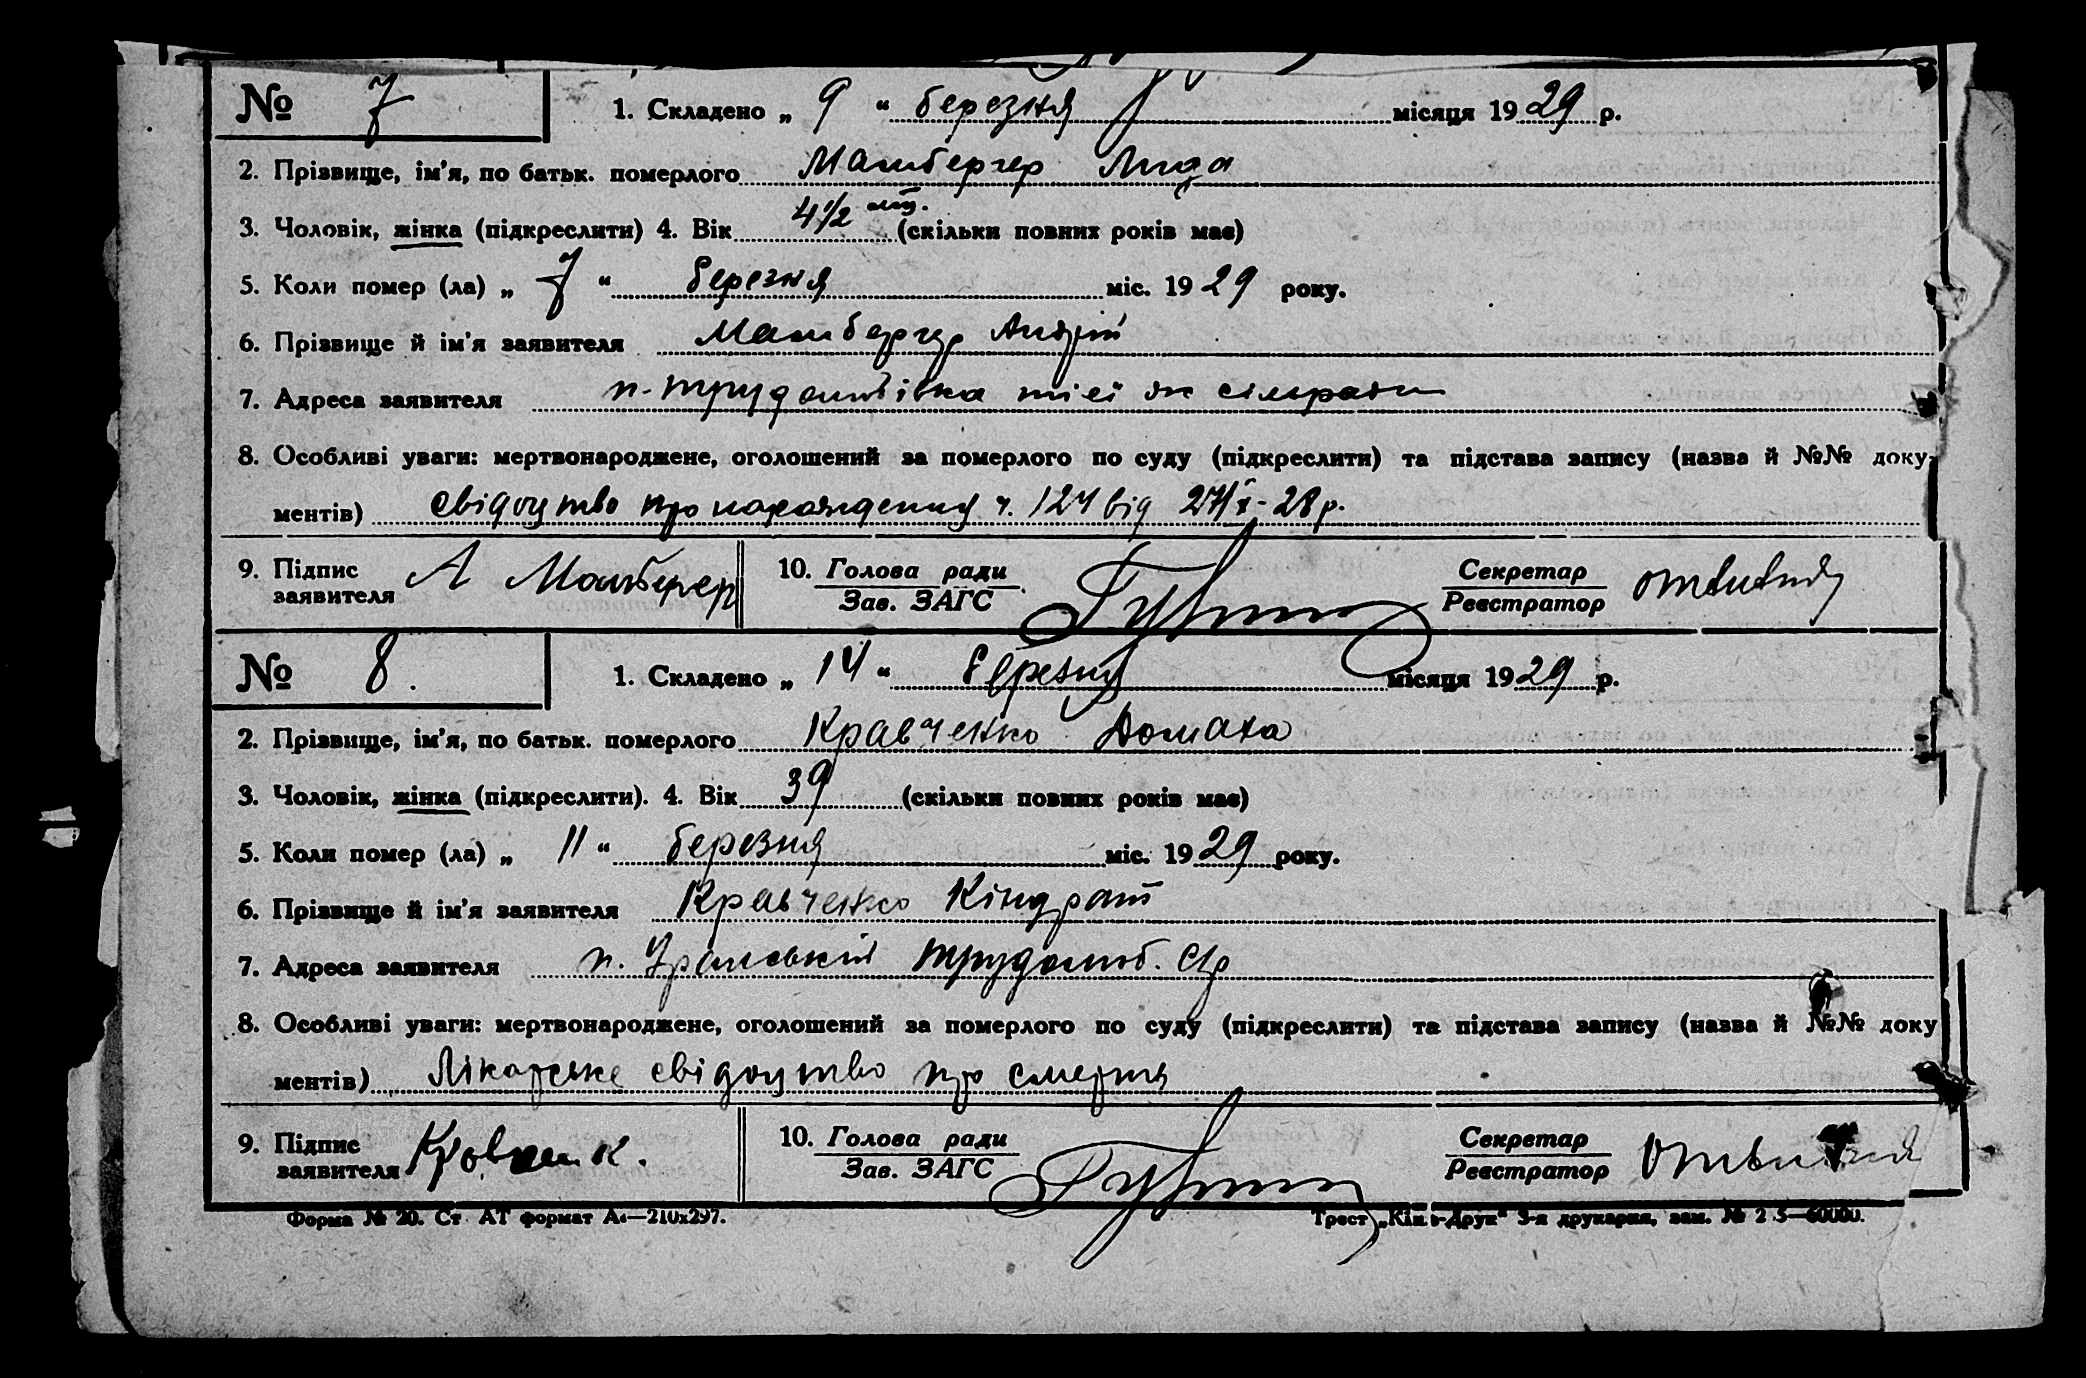 № 7 1. Складено „ 9 “ березня місяця 1929 р.
2. Прізвище, ім’я, по батьк. померлого Мамбергер Лида
3. Чоловік, жінка (підкреслити) 4. Вік 4½ міс. (скільки повних років має)
5. Коли помер (ла) „ 7 “ березня міс. 1929 року.
6. Прізвище й ім’я заявителя Мамбергер Андрій
7. Адреса заявителя тієї ж сільради
8. Особливі уваги: мертвонароджене, оголошений за померлого по суду (підкреслити) та підстава запису (назва й №№ доку-
ментів) свідоцтво про народження ч. 124 від 27/X-28 р.
9. Підпис заявителя А Мамбергер 10. Голова ради Секретар
Зав. ЗАГС Реєстратор
№ 8. 1. Складено „ 14 “ березня місяця 1929 р.
2. Прізвище, ім’я, по батьк. померлого Кравченко Домаха
3. Чоловік, жінка (підкреслити). 4. Вік 39 (скільки повних років має)
5. Коли помер (ла) „ 11 “ березня міс. 1929 року.
6. Прізвище й ім’я заявителя Кравченко Кіндрат
7. Адреса заявителя п. Трудолюб. С/р
8. Особливі уваги: мертвонароджене, оголошений за померлого по суду (підкреслити) та підстава запису (назва й №№ доку
ментів) Лікарське свідоцтво про смерть
9. Підпис заявителя 10. Голова ради Секретар
Зав. ЗАГС Реєстратор
Форма № 20. Ст АТ формат А4—210х297. Трест друкарня, зам. №